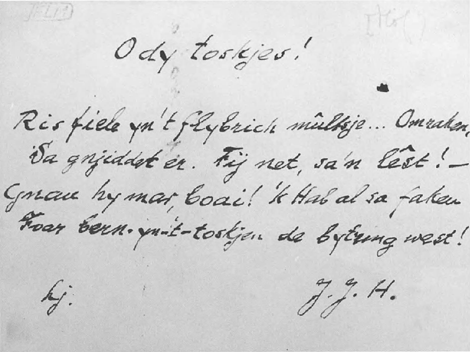 O dy toskjes!
Ris fiele yn't flybrich mûltsje... Omraken,
Sa gnjiddet er. Fij net, sa'n lêst! —
Gnau hy mar, boai! 'k Hab al sa faken
Foar bern-yn-'t-toskjen de bytring west!
hj. J. J. H.